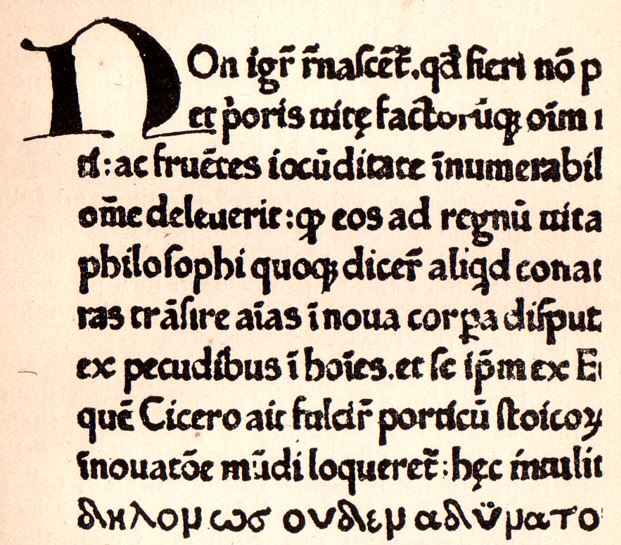 NOn igr̃ r̃nascẽt̃.qđ fieri nõ p
et p̃oris uitę factorũqꝫ oĩm
tĩ:ac fruẽtes iocũditate ĩnumerabil
om̃e deleuerit:ꝙ eos ad regnũ uita
philosophi quoqꝫ dicer̃ aliqđ conat
ras trãsire aĩas ĩ noua corꝑa disput
ex pecudibus ĩ hoĩes.et se ip̃m ex E
quẽ Cicero ait fulcir̃ porticũ stoicoꝝ
ĩnouatõe mũdi loqueret̃:hęc intulit
δηλομ ωσ ουδεμ αδΰματο